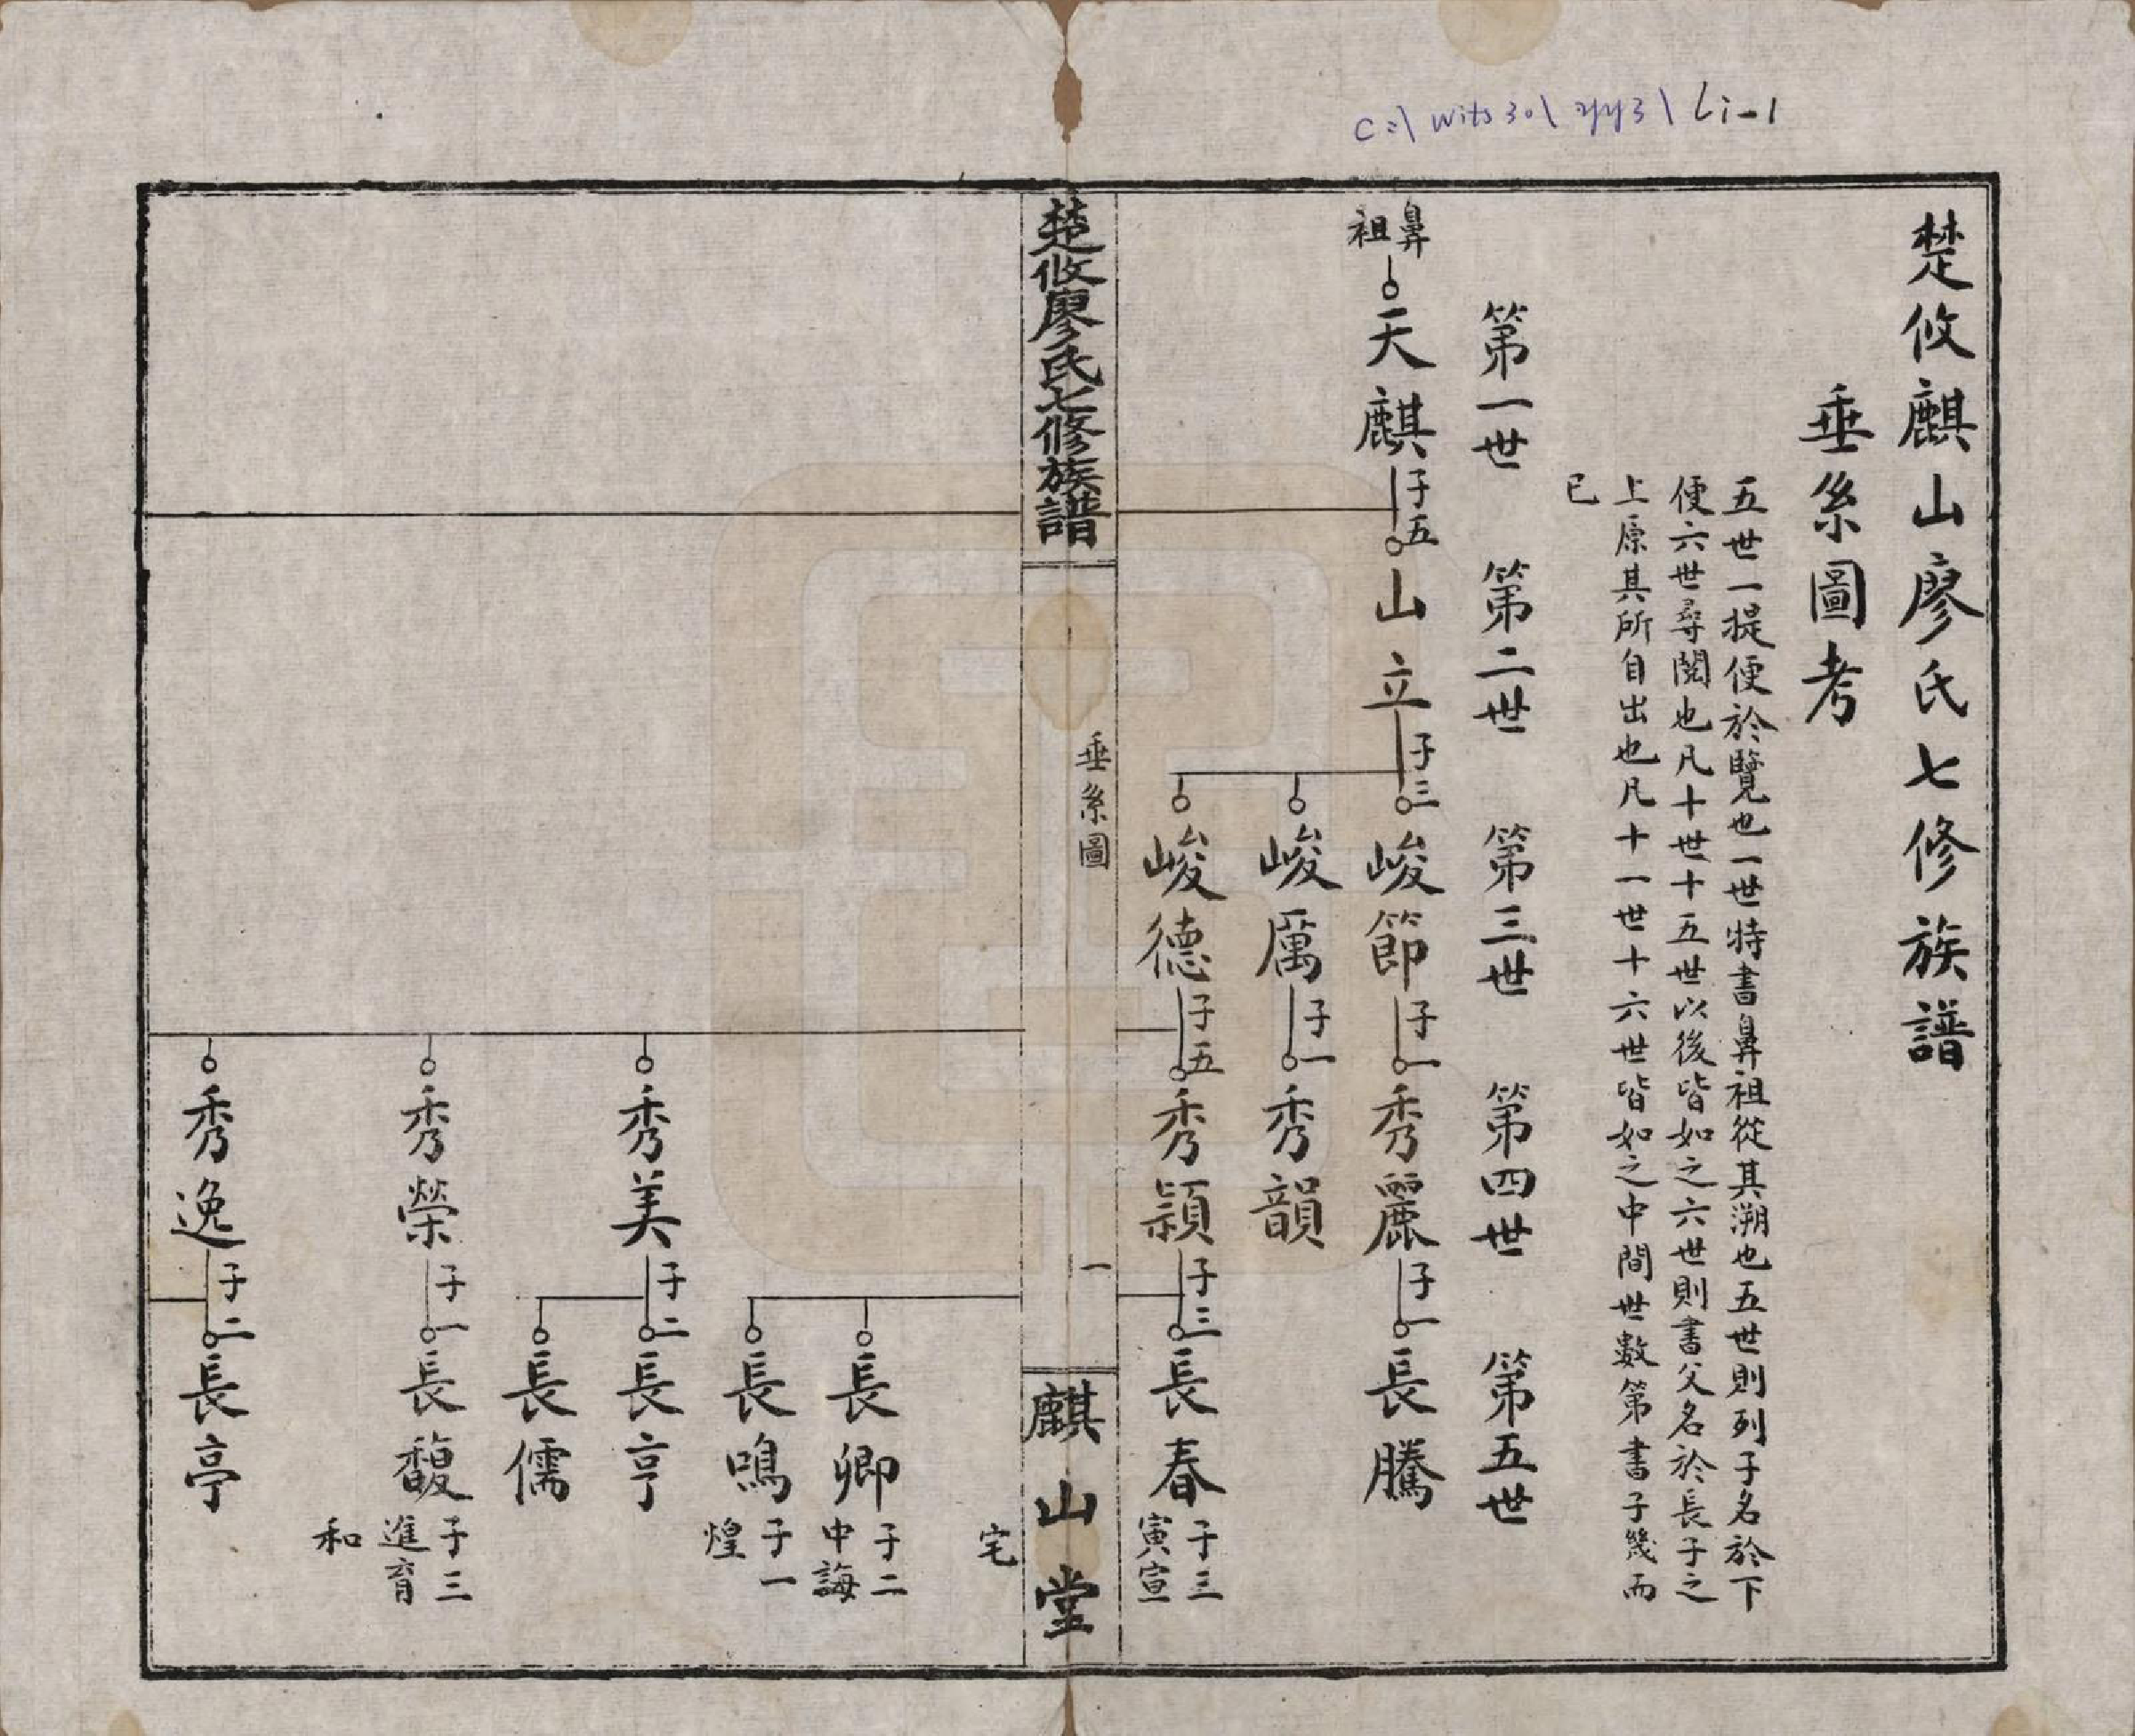 C:\wits30\zy3\Li-1
楚攸麒山廖氏七修族譜
垂糸圖考
五世一提便於覽也一世特書鼻祖從其溯也五世則列子名於下
便六世尋閱也凡十世十五世以後皆如之六世則書父名於長子之
上原其所自出也凡十一世十六世皆如之中間世數第書子幾而
已
第一世 第二世 第三世 第四世 第五世
鼻祖 天麒 子五 山立 子三 峻節 子一 秀麗 子一 長騰
峻厲 子一 秀韻
峻德 子五 秀穎 子三 長春 子三 寅宣
楚攸廖氏七修族譜 垂糸圖 一 麒山堂
宅
長卿 子二 中誨
長鳴 子一 煌
秀美 子二 長亨
長儒
秀榮 子一 長馥 子三 進育
和
秀逸 子二 長亭